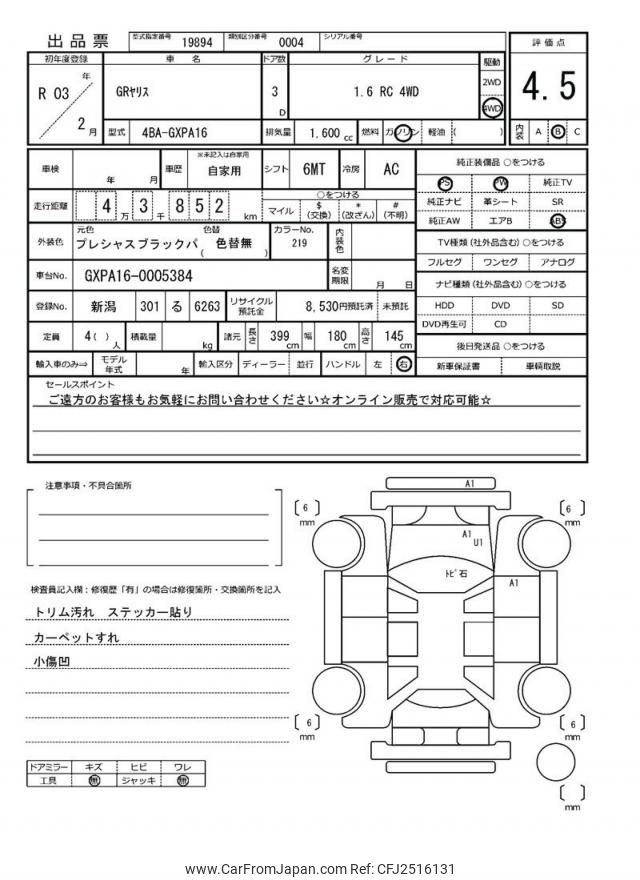 出品票
型式指定番号 19894 類別区分番号 0004 シリアル番号
評価点
4.5
内装 A B C
初年度登録 車名 ドア数 グレード 駆動
R 03 年 2 月
GRﾔﾘｽ
3 D
1.6 RC 4WD
2WD
4WD
型式 4BA-GXPA16 排気量 1,600 cc 燃料 ガソリン 軽油 ( )
車検 年 月 車歴 ※未記入は自家用 自家用 シフト 6MT 冷房 AC
走行距離 4 万 3 千 8 5 2 km
○をつける
マイル $(交換) *(改ざん) #(不明)
外装色 元色 プレシャスブラックパ 色替 ( 色替無 ) カラーNo. 219 内装色
車台No. GXPA16-0005384 名変期限 月 日
登録No. 新潟 301 る 6263 リサイクル預託金 8,530円預託済 未預託
定員 4 ( ) 人 積載量 kg 諸元 長さ 399 cm 幅 180 cm 高さ 145 cm
輸入車のみ⇒ モデル年式 年 輸入区分 ディーラー 並行 ハンドル 左 右
純正装備品 ○をつける
PS PW 純正TV
純正ナビ 革シート SR
純正AW エアB ABS
TV種類 (社外品含む) ○をつける
フルセグ ワンセグ アナログ
ナビ種類 (社外品含む) ○をつける
HDD DVD SD
DVD再生可 CD
後日発送品 ○をつける
新車保証書 車輌取説
セールスポイント
ご遠方のお客様もお気軽にお問い合わせください☆オンライン販売で対応可能☆
注意事項・不具合箇所
検査員記入欄：修復歴「有」の場合は修復箇所・交換箇所を記入
トリム汚れ ステッカー貼り
カーペットすれ
小傷凹
ドアミラー キズ ヒビ ワレ
工具 無 ジャッキ 無
A1
6 mm
6 mm
A1
U1
ﾄﾋﾞ石
A1
6 mm
6 mm
mm
www.CarFromJapan.com Ref: CFJ2516131